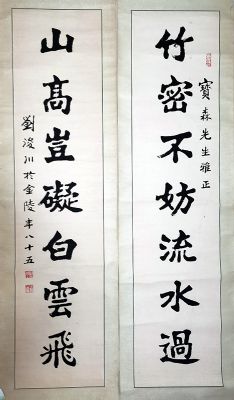 竹密不妨流水過
寶森先生雅正
山高豈礙白雲飛
劉浚川於金陵年八十五